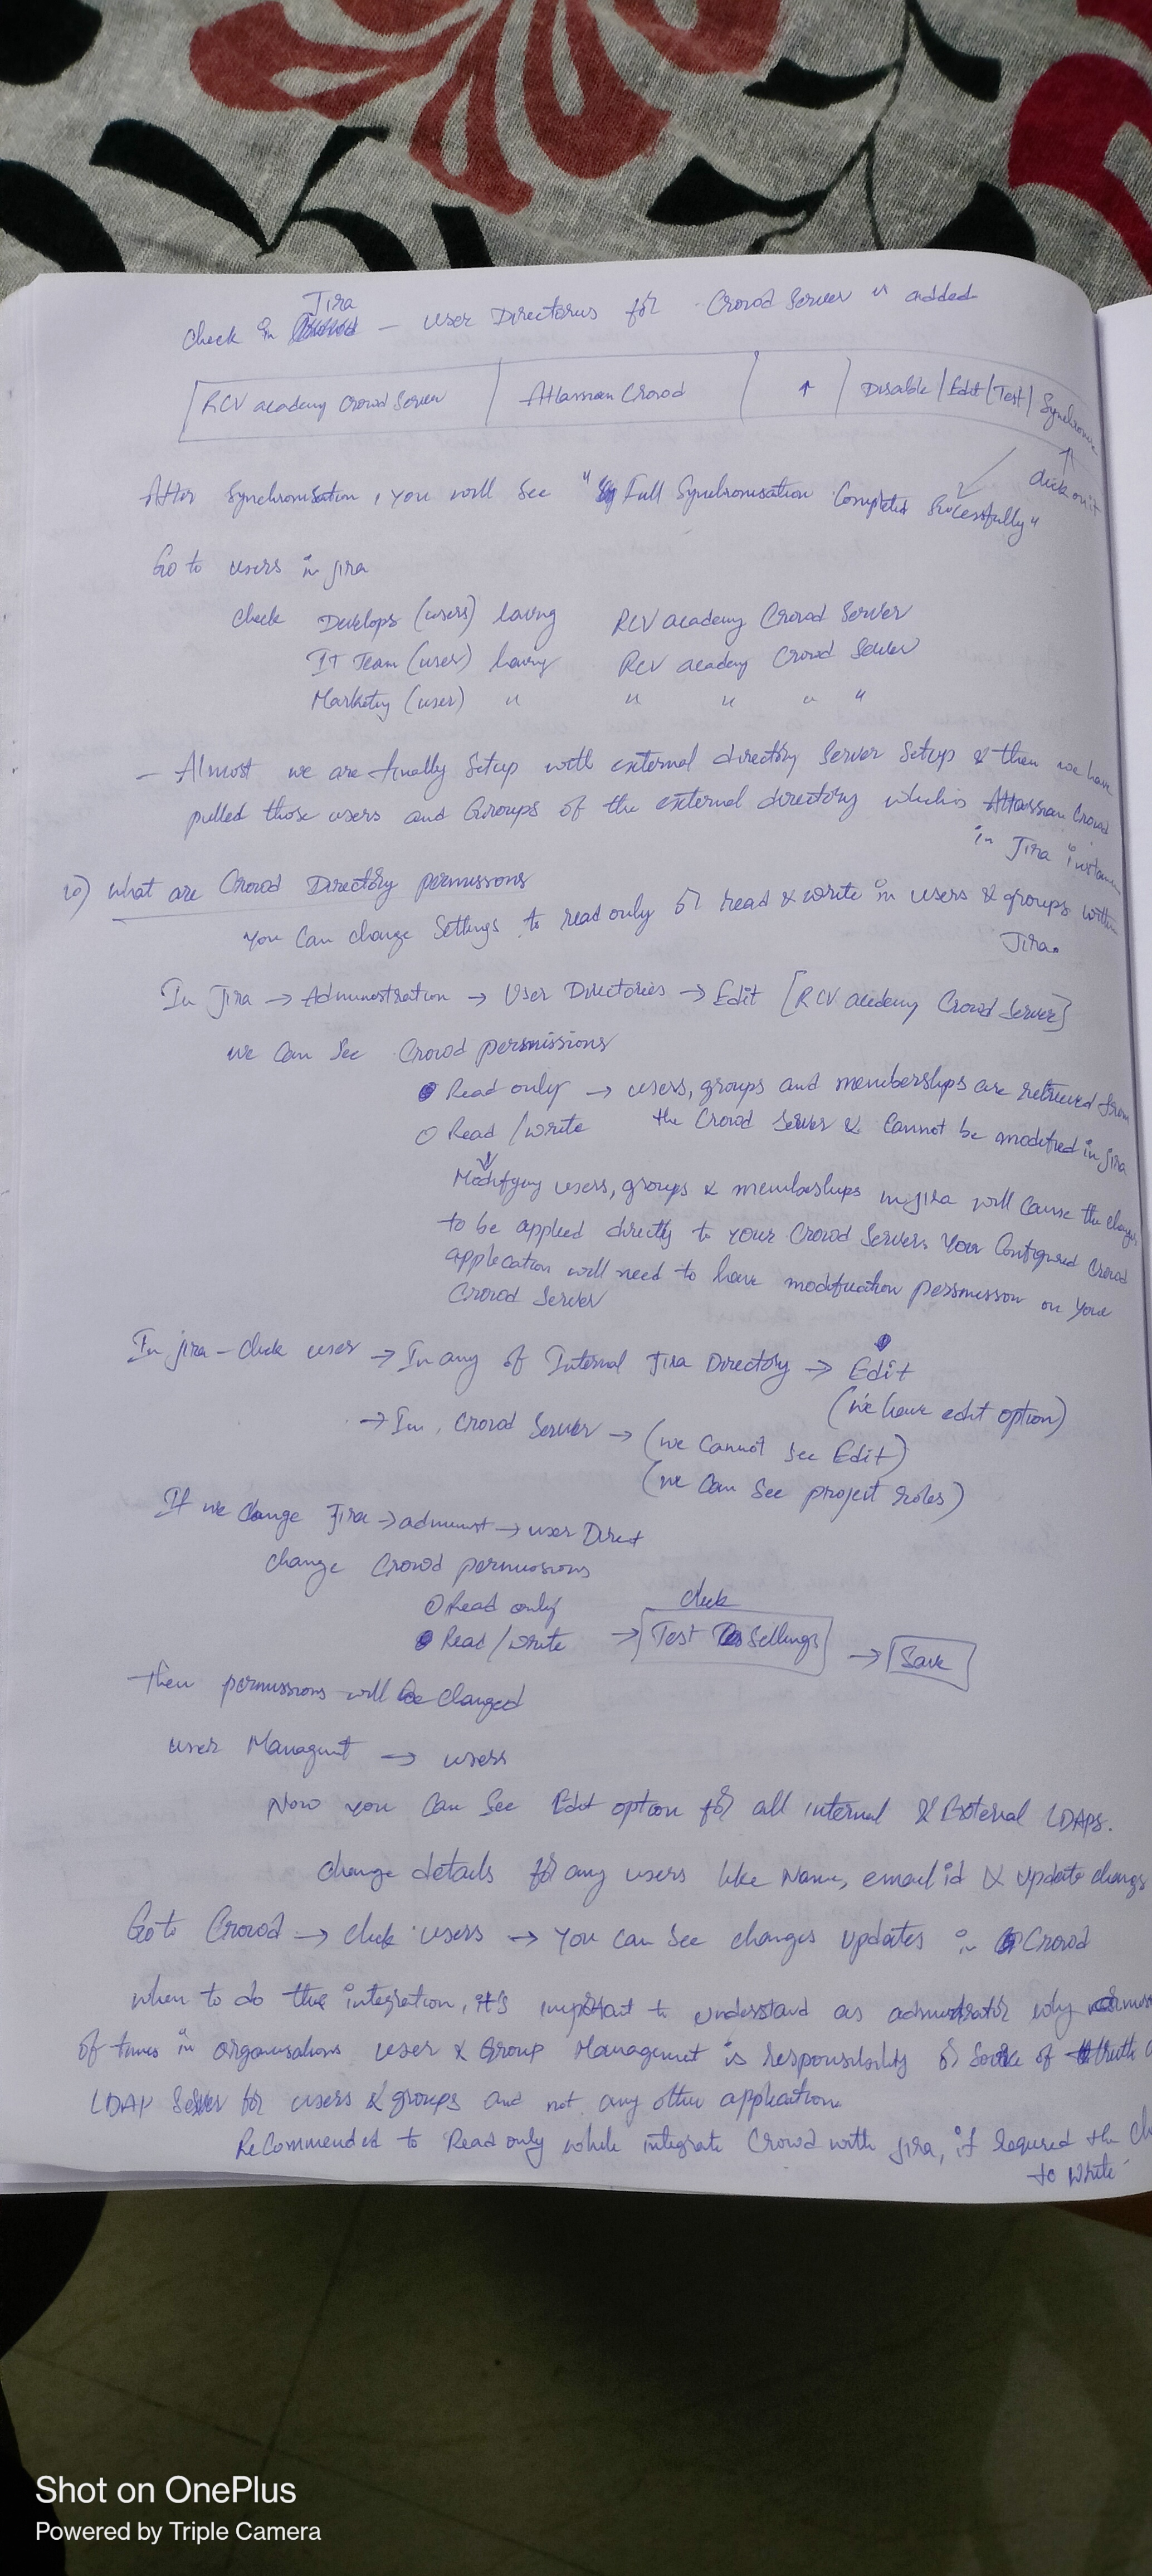 Jira
check in - User Directories for Crowd Server is added
RCV academy Crowd Server | Atlassian Crowd | ↑ | Disable | Edit | Test | Synchronise
click on it
After Synchronisation, you will see "Full Synchronisation Completed Sucessfully"
Go to users in jira
check Develops (users) having RCV academy Crowd Server
IT Team (user) having RCV academy Crowd Server
Marketing (user) " " " " "
- Almost we are finally Setup with external directory Server Setup & then we have
pulled those users and Groups of the external directory which is Atlassian Crowd
in Jira instance
10) what are Crowd Directory permissions
You Can change Settings to read only or read & write in users & groups within
Jira.
In Jira → Administration → User Directories → Edit [RCV academy Crowd Server]
we can See Crowd permissions
Read only → users, groups and memberships are retrieved from
Read / write the Crowd Server & cannot be modified in jira
Modifying users, groups & memberships in jira will cause the changes
to be applied directly to your Crowd Server. Your Configured Crowd
application will need to have modification permission on your
Crowd Server
In jira - click user → In any of Internal Jira Directory → Edit
(we have edit option)
→ In Crowd Server → (we Cannot See Edit)
(we Can See project roles)
If we change Jira → administ → user Direct
change Crowd permissions
Read only
click
Read / write → Test Settings → Save
then permissions will be changed
user Managment → users
Now you Can See Edit option for all internal & External LDAPs.
change details for any users like Name, email id & update changes
Go to Crowd → click users → You can See changes updates in Crowd
when to do the integration, it's important to understand as administrator why
of times in organisations user & Group Managment is responsibility of Source of truth
LDAP Server for users & groups and not any other application
Recommended to Read only while integrate Crowd with jira, if required the
to write